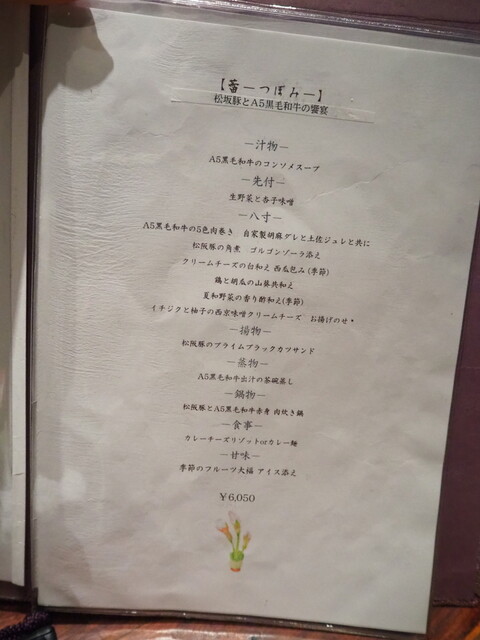 【蕾ーつぼみー】
松坂豚とA5黒毛和牛の饗宴
ー汁物ー
A5黒毛和牛のコンソメスープ
ー先付ー
生野菜と杏子味噌
ー八寸ー
A5黒毛和牛の5色肉巻き 自家製胡麻ダレと土佐ジュレと共に
松阪豚の角煮 ゴルゴンゾーラ添え
クリームチーズの白和え 西瓜包み(季節)
鶏と胡瓜の山葵共和え
夏和野菜の香り酢和え(季節)
イチジクと柚子の西京味噌クリームチーズ お揚げのせ*
ー揚物ー
松阪豚のプライムブラックカツサンド
ー蒸物ー
A5黒毛和牛出汁の茶碗蒸し
ー鍋物ー
松阪豚とA5黒毛和牛赤身 肉炊き鍋
ー食事ー
カレーチーズリゾットorカレー麺
ー甘味ー
季節のフルーツ大福 アイス添え
￥6,050